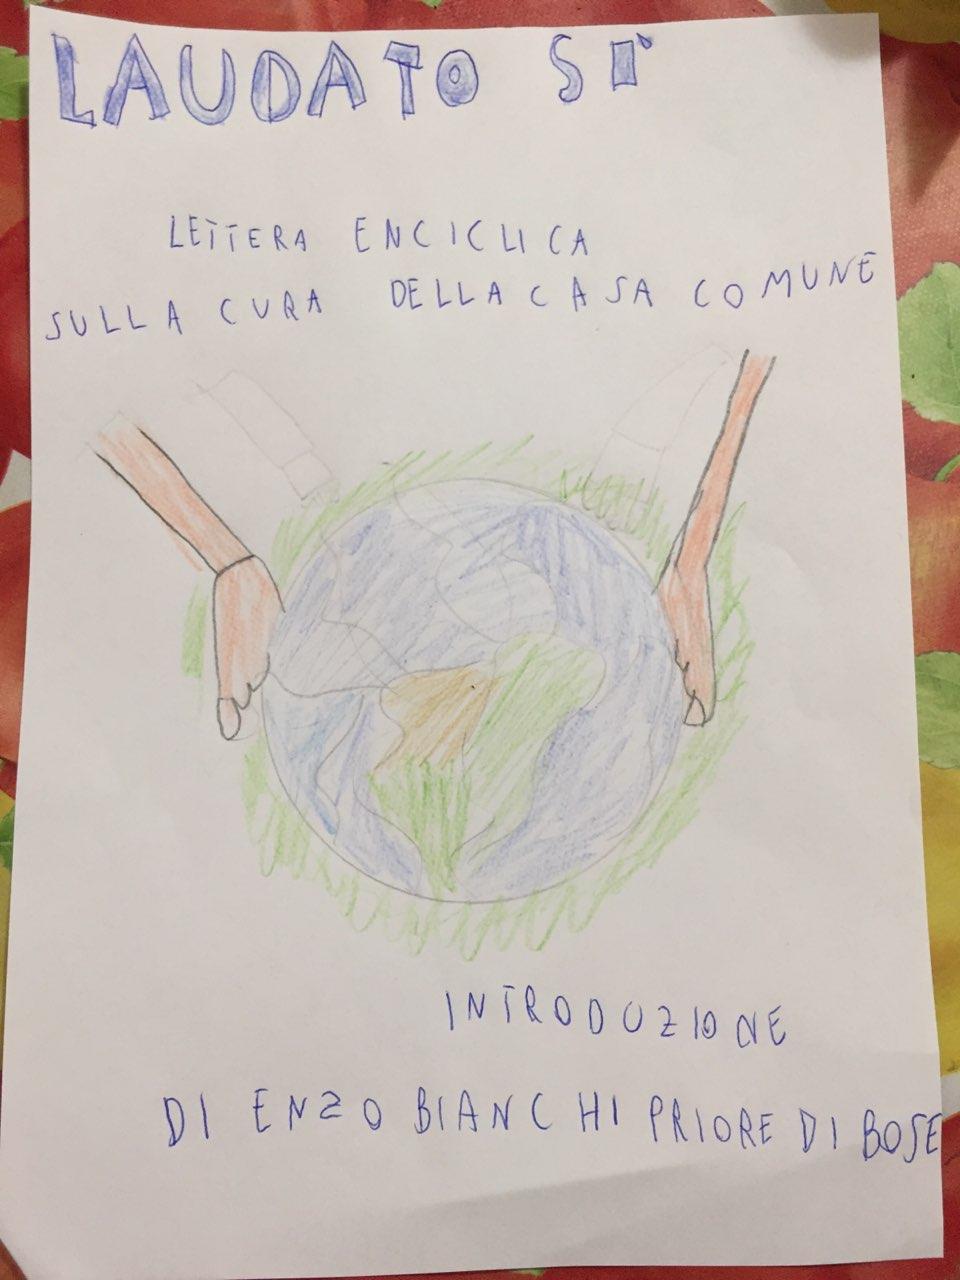 LAUDATO SÌ
LETTERA ENCICLICA
SULLA CURA DELLA CASA COMUNE
INTRODUZIONE
DI ENZO BIANCHI PRIORE DI BOSE